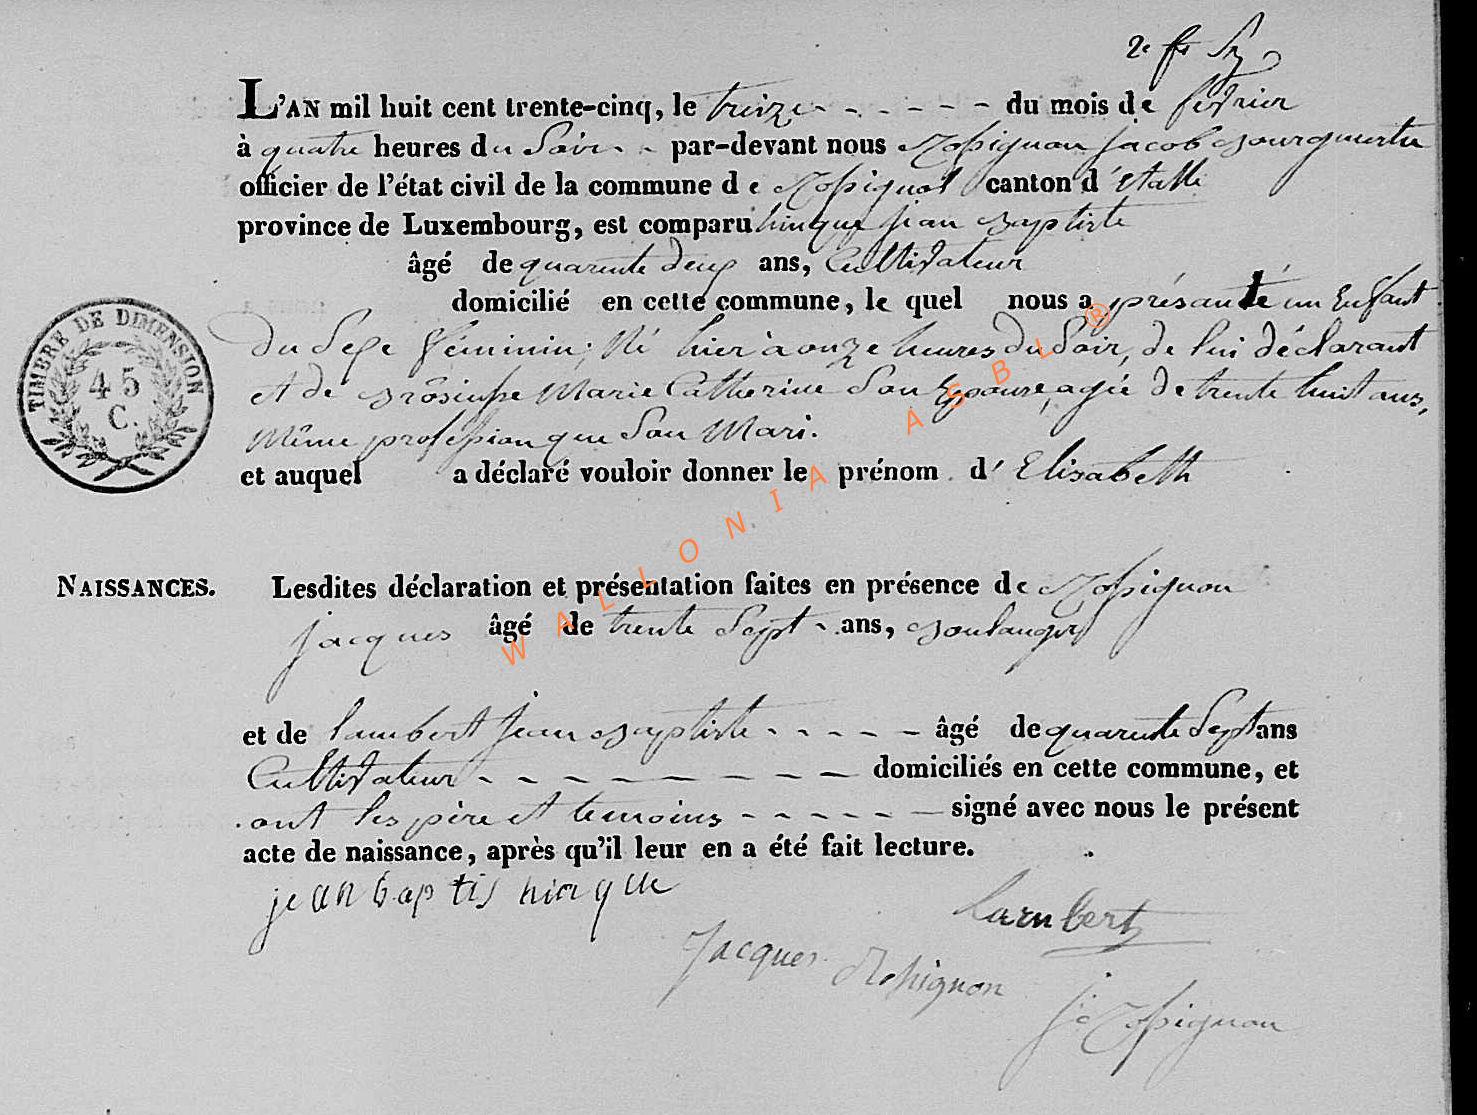 2e fr
L'AN mil huit cent trente-cinq, le treize - - - - - - du mois de fevrier
à quatre heures du Soir - - par-devant nous Rossignon jacob Bourguestre
officier de l'état civil de la commune de Rossignol canton d'etalle
province de Luxembourg, est comparu hinque jean Baptiste
âgé de quarente deux ans, Cultivateur
domicilié en cette commune, le quel nous a présanté un Enfant
Du Sexe féminin; Né hier à onze heures Du Soir, de lui déclarant
et de Marie Catherine Son Epouse, agée De trente huit ans,
Même profession que Son Mari.
et auquel a déclaré vouloir donner le prénom d' Elisabeth
TIMBRE DE DIMENSION
45
C.
NAISSANCES.
Lesdites déclaration et présentation faites en présence de Rossignon
jacques âgé de trente Sept - ans, Boulanger
et de lambert jean Baptiste - - - - - âgé de quarente Sept ans
Cultivateur - - - - - - - - - domiciliés en cette commune, et
ont les père et temoins - - - - - - signé avec nous le présent
acte de naissance, après qu'il leur en a été fait lecture.
jean baptis hinque
Lambert
Jacques Rossignon
j Rossignon
WALLONIA ASBL ®